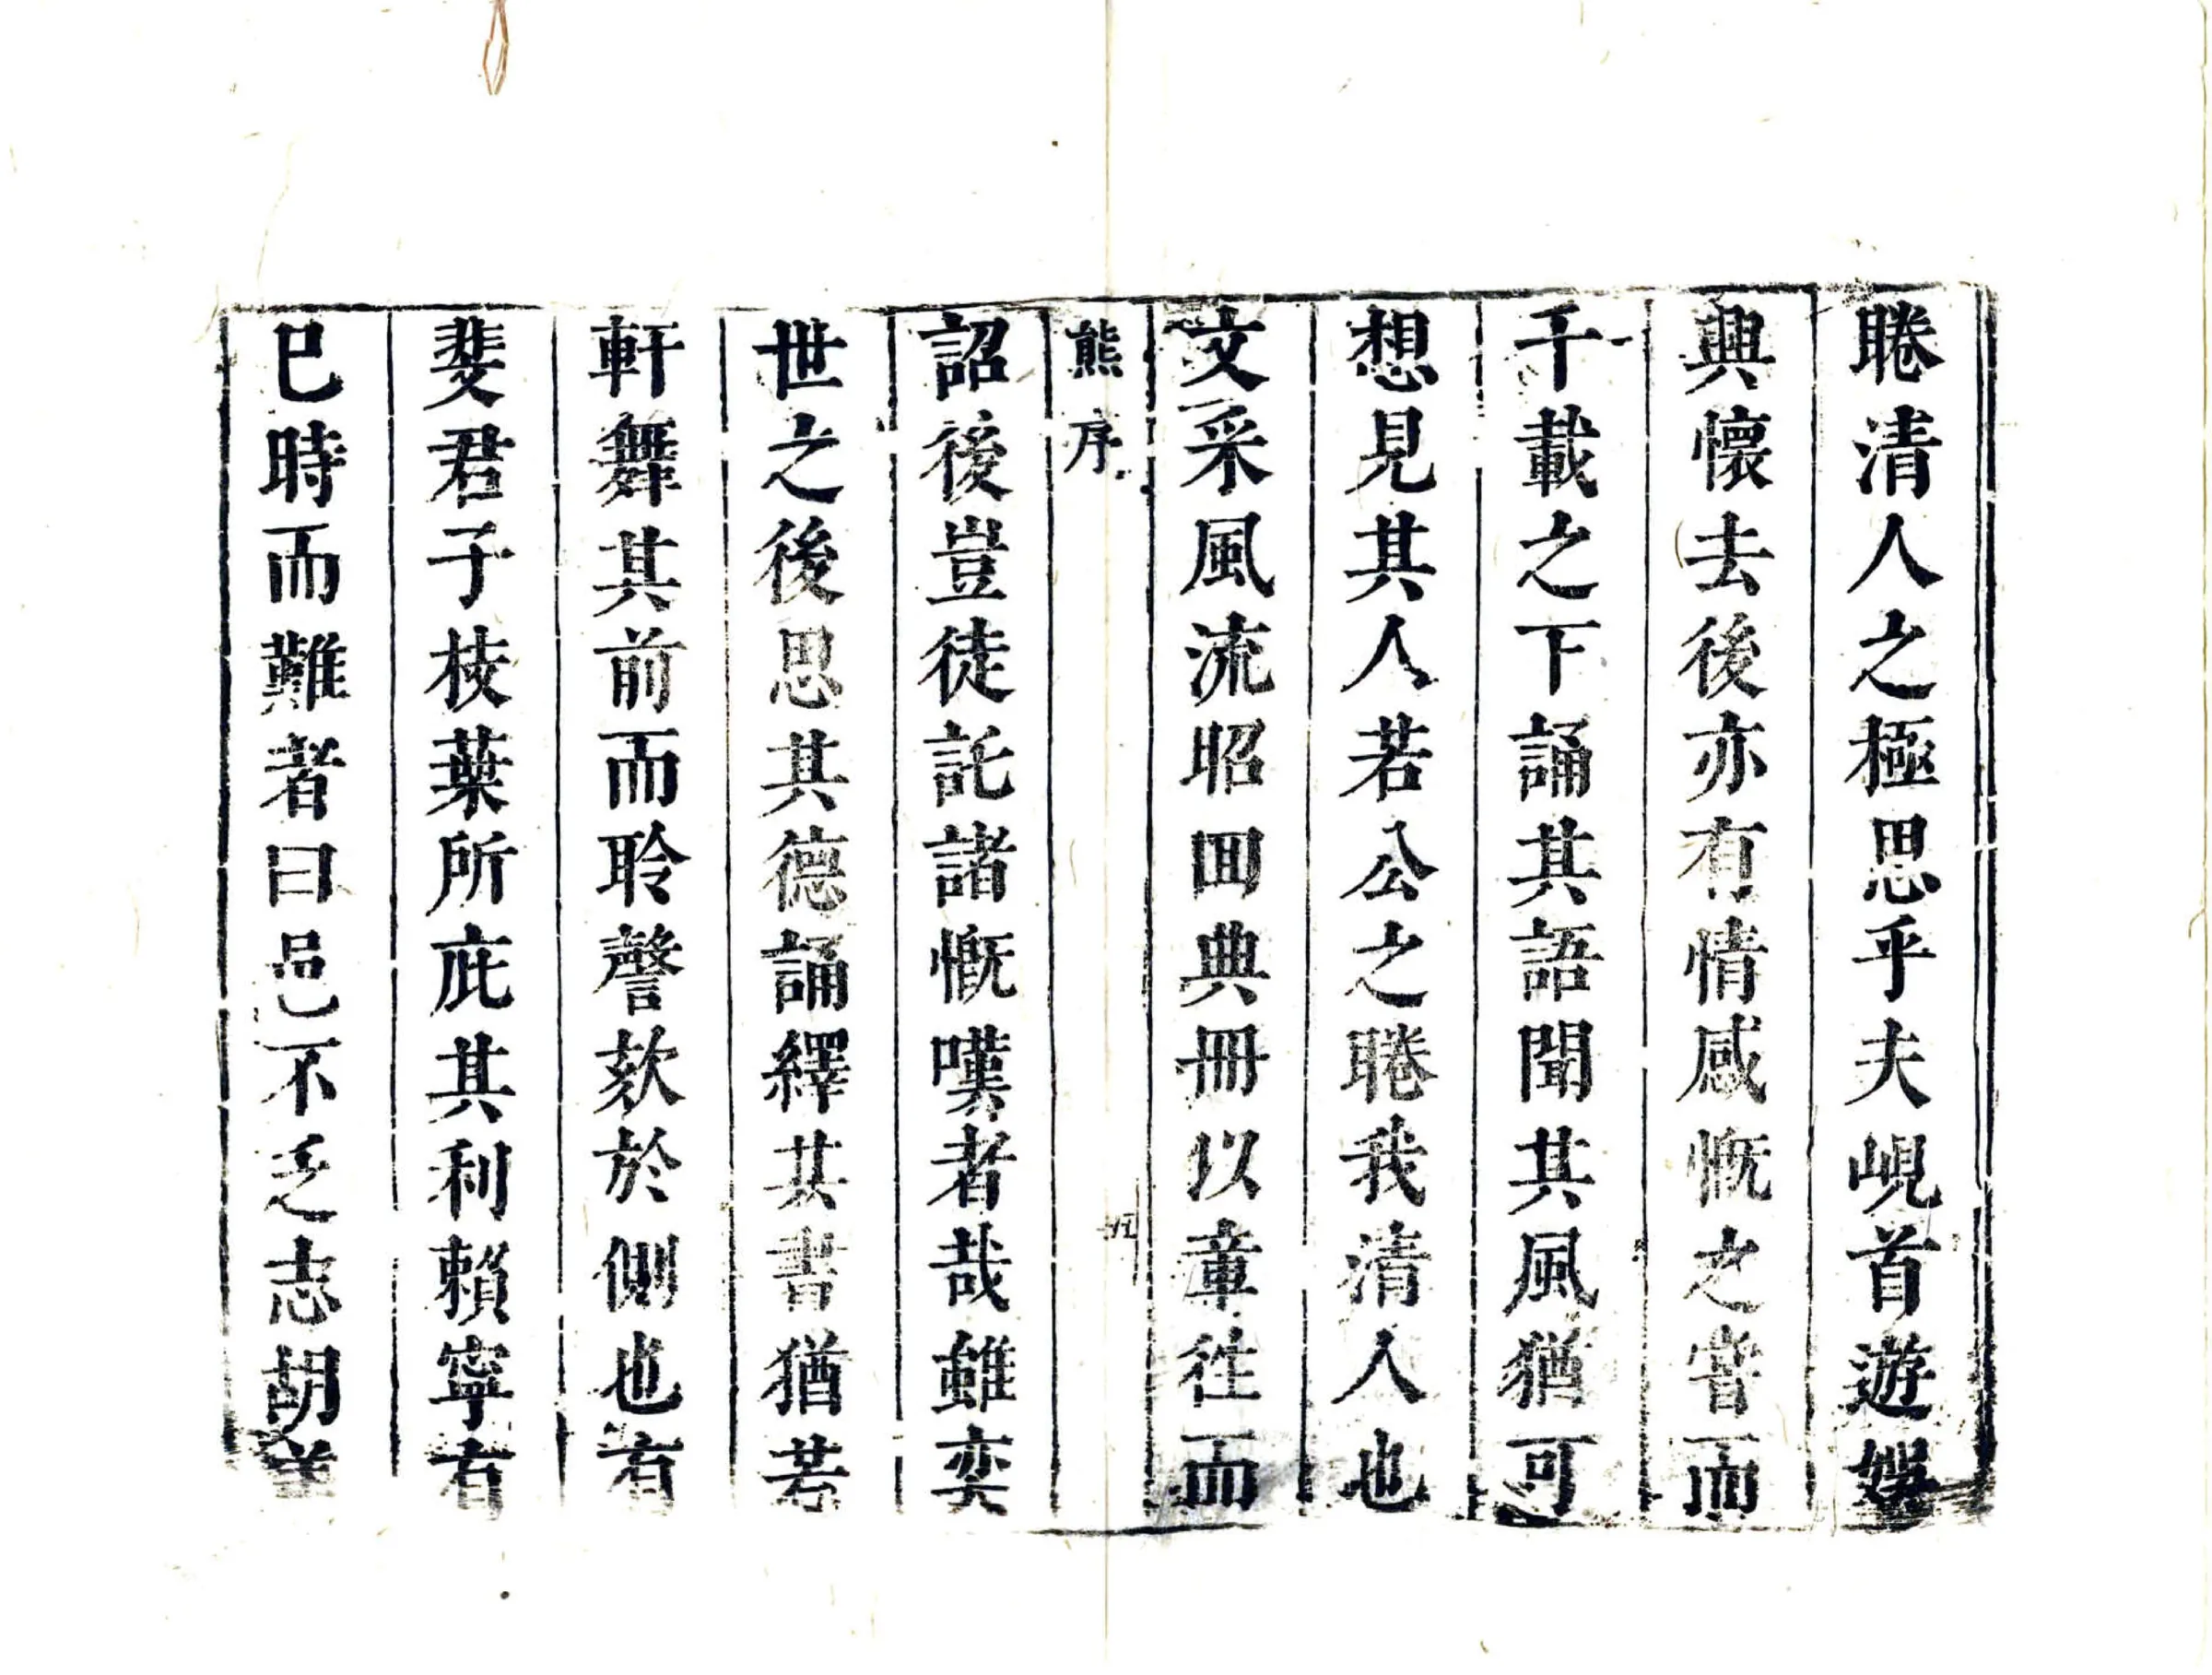 睠清人之極思乎夫峴首遊娛
興懷去後亦有情感慨之嘗而
千載之下誦其語聞其風猶可
想見其人若公之睠我清人也
文采風流昭囬典冊以章徃而
熊序
五
詔後豈徒託諸慨嘆者哉雖奕
世之後思其德誦繹其書猶若
軒舞其前而聆謦欬於側也有
斐君子枝葉所庇其利賴寧有
已時而難者曰邑不乏志胡